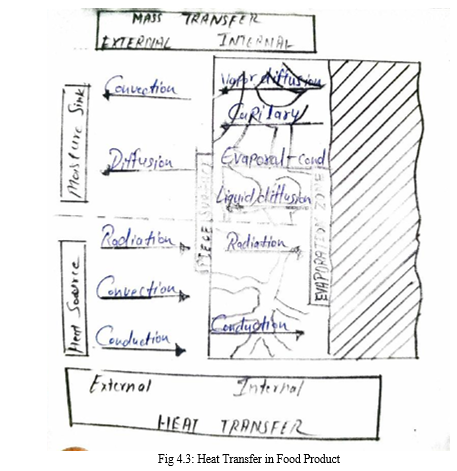 MASS TRANSFER
EXTERNAL INTERNAL
Moisture Sink
Convection
Vapor diffusion
Capilary
Diffusion
Evaporat-cond
Liquid diffusion
Radiation
Radiation
Heat Source
Convection
Conduction
Conduction
EVAPORATION ZONE
External Internal
HEAT TRANSFER
Fig 4.3: Heat Transfer in Food Product